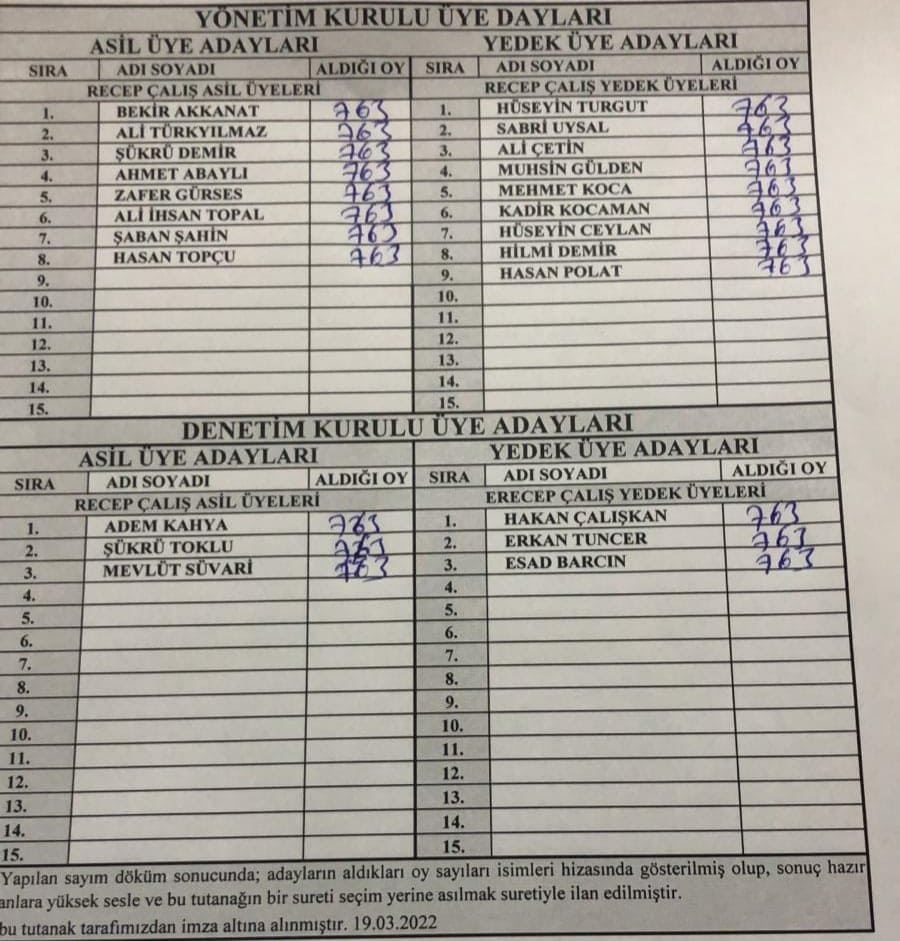 YÖNETİM KURULU ÜYE DAYLARI
ASİL ÜYE ADAYLARI YEDEK ÜYE ADAYLARI
SIRA ADI SOYADI ALDIĞI OY SIRA ADI SOYADI ALDIĞI OY
RECEP ÇALIŞ ASİL ÜYELERİ RECEP ÇALIŞ YEDEK ÜYELERİ
1. BEKİR AKKANAT 763 1. HÜSEYİN TURGUT 763
2. ALİ TÜRKYILMAZ 763 2. SABRI UYSAL 763
3. ŞÜKRÜ DEMİR 763 3. ALİ ÇETİN 763
4. AHMET ABAYLI 763 4. MUHSİN GÜLDEN 763
5. ZAFER GÜRSES 763 5. MEHMET KOCA 763
6. ALİ İHSAN TOPAL 763 6. KADİR KOCAMAN 763
7. ŞABAN ŞAHİN 763 7. HÜSEYİN CEYLAN 763
8. HASAN TOPÇU 763 8. HİLMİ DEMİR 763
9. 9. HASAN POLAT 763
10. 10.
11. 11.
12. 12.
13. 13.
14. 14.
15. 15.
DENETİM KURULU ÜYE ADAYLARI
ASİL ÜYE ADAYLARI YEDEK ÜYE ADAYLARI
SIRA ADI SOYADI ALDIĞI OY SIRA ADI SOYADI ALDIĞI OY
RECEP ÇALIŞ ASİL ÜYELERİ ERECEP ÇALIŞ YEDEK ÜYELERİ
1. ADEM KAHYA 763 1. HAKAN ÇALIŞKAN 763
2. ŞÜKRÜ TOKLU 763 2. ERKAN TUNCER 763
3. MEVLÜT SÜVARİ 763 3. ESAD BARCIN 763
4. 4.
5. 5.
6. 6.
7. 7.
8. 8.
9. 9.
10. 10.
11. 11.
12. 12.
13. 13.
14. 14.
15. 15.
Yapılan sayım döküm sonucunda; adayların aldıkları oy sayıları isimleri hizasında gösterilmiş olup, sonuç hazır
anlara yüksek sesle ve bu tutanağın bir sureti seçim yerine asılmak suretiyle ilan edilmiştir.
bu tutanak tarafımızdan imza altına alınmıştır. 19.03.2022